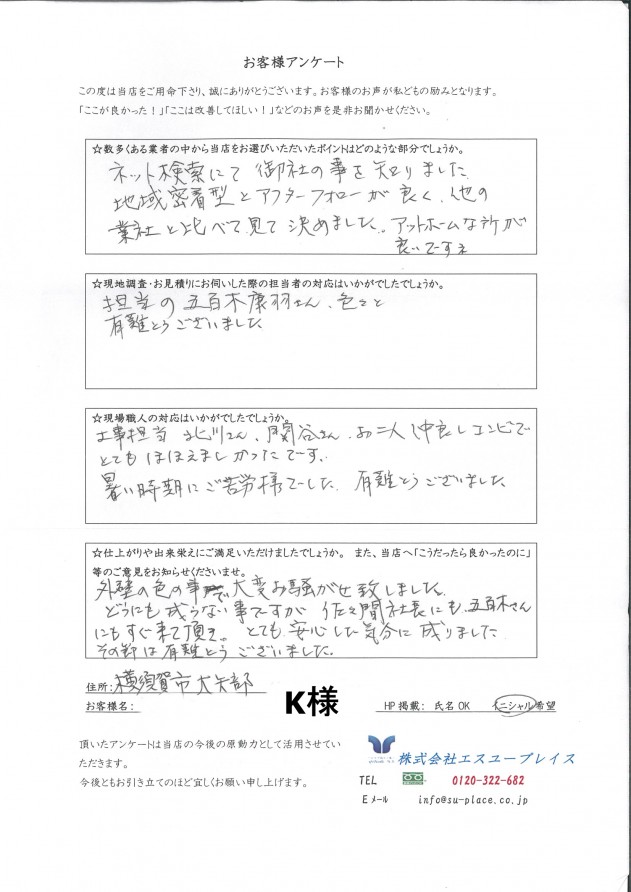 お客様アンケート
この度は当店をご用命下さり、誠にありがとうございます。お客様のお声が私どもの励みとなります。
「ここが良かった!」「ここは改善してほしい!」などのお声を是非お聞かせください。
☆数多くある業者の中から当店をお選びいただいたポイントはどのような部分でしょうか。
ネット検索にて御社の事を知りました
地域密着型とアフターフォローが良く、他の
業社と比べて見て決めました。アットホームな所が
良いですネ
☆現地調査・お見積りにお伺いした際の担当者の対応はいかがでしたでしょうか。
担当の五百木康羽さん、色々と
有難とうございました
☆現場職人の対応はいかがでしたでしょうか。
工事担当 北川さん、関谷さん、お二人仲良しコンビで
とてもほほえましかったです、
暑い時期にご苦労様でした、有難とうございました
☆仕上がりや出来栄えにご満足いただけましたでしょうか。 また、当店へ「こうだったら良かったのに」
等のご意見をお知らせくださいませ。
外壁の色の事で大変お騒がせ致しました、
どうにも成らない事ですが 佐々間社長にも、五百木さん
にもすぐ来て頂き。とても安心した気分に成りました
その節は有難とうございました。
住所: 横須賀市大矢部
お客様名: K様 HP掲載: 氏名OK イニシャル希望
頂いたアンケートは当店の今後の原動力として活用させてい
ただきます。
今後ともお引き立てのほど宜しくお願い申し上げます。
株式会社エスユープレイス
TEL 0120-322-682
Eメール info@su-place.co.jp